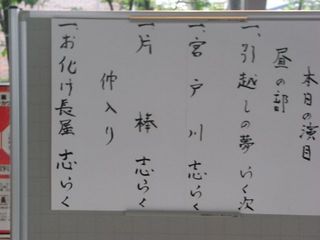 本日の演目
昼の部
一、引越しの夢 いく次
一、宮戸川 志らく
一、片棒 志らく
仲入り
一、お化け長屋 志らく